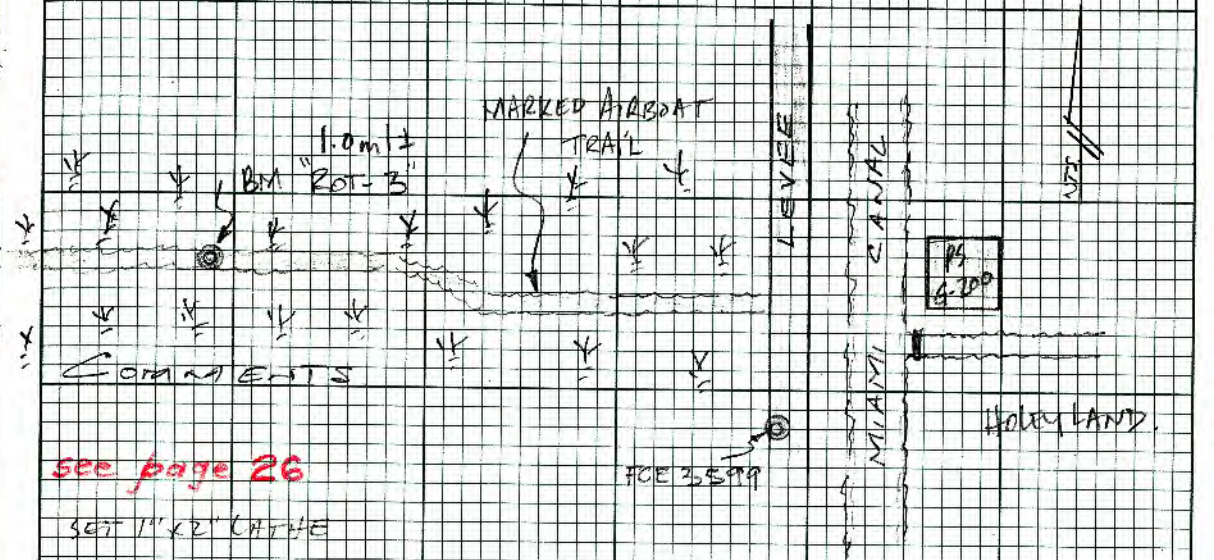 MARKED AIRBOAT
TRAIL
1.0 mi±
BM "ROT-3"
LEVEE
MIAMI CANAL
NTS
PS
G-200
COMMENTS
HOLEY LAND.
FCE 3599
see page 26
SET 1"x2" LATHE